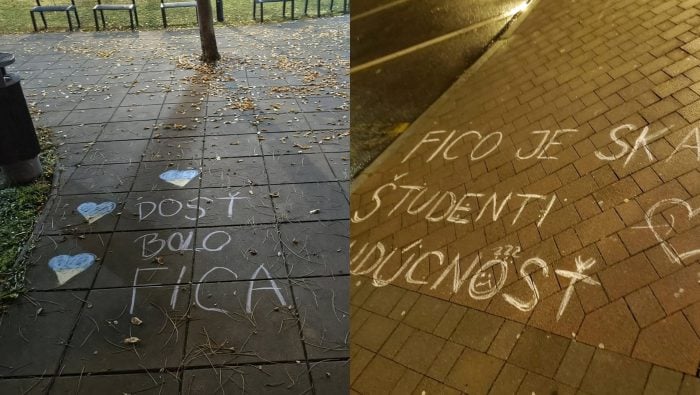 DOSŤ
BOLO
FICA
FICO JE SKA
ŠTUDENTI
zzz
UDÚCNOSŤ